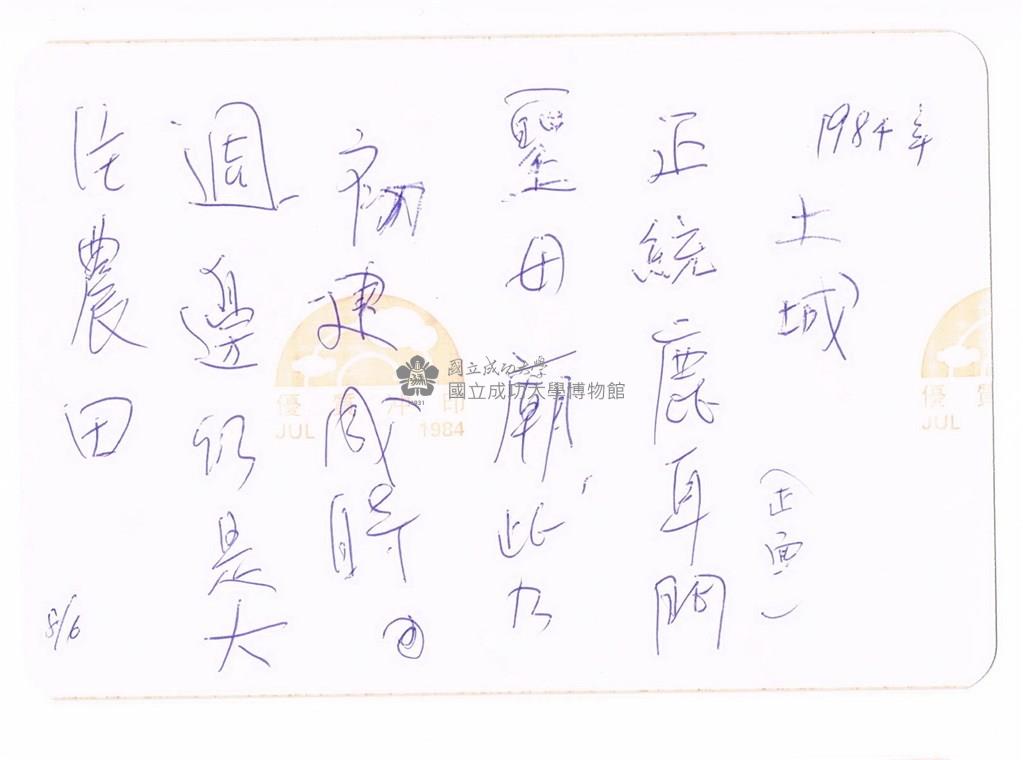 1984年
土城(正面)
正統鹿耳門
聖母廟,此乃
初建成時的
週邊仍是大
片農田
5/6
國立成功大學
國立成功大學博物館
1931
優質沖印
JUL 1984
優質
JUL